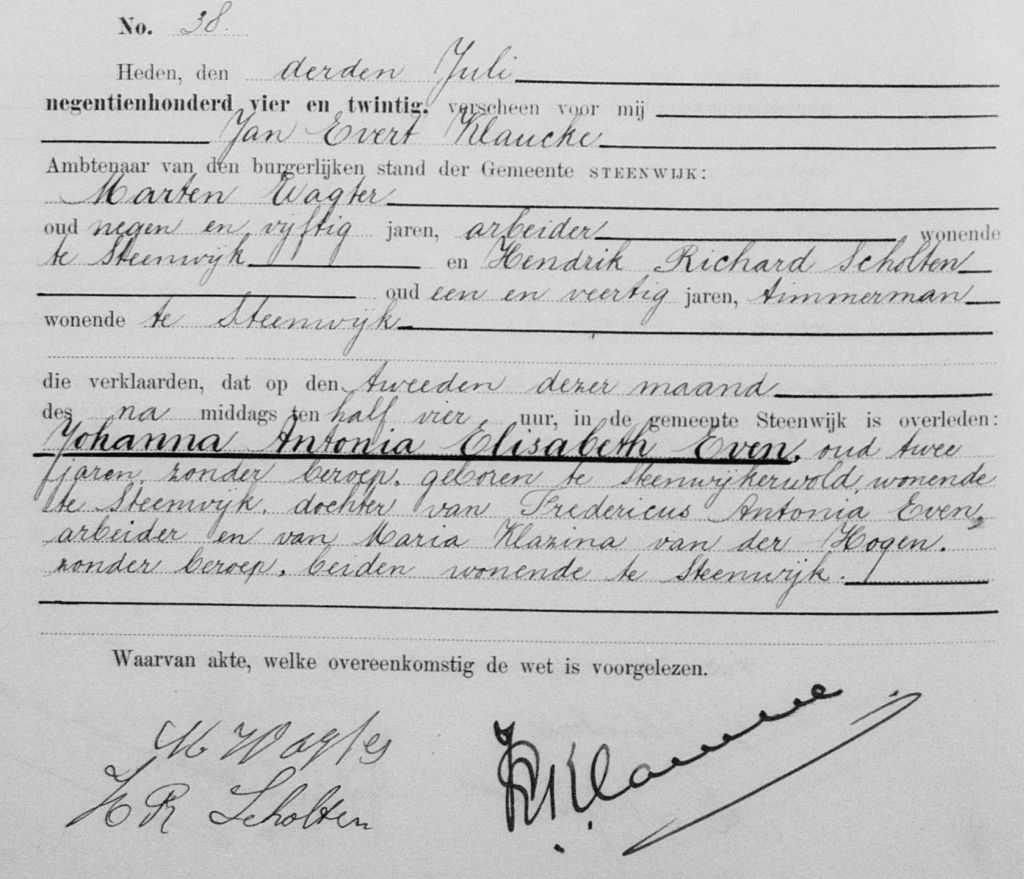 No. 38.
Heden, den derden Juli
negentienhonderd vier en twintig, verscheen voor mij
Jan Evert Klaucke
Ambtenaar van den burgerlijken stand der Gemeente STEENWIJK:
Marten Wagter
oud negen en vijftig jaren, arbeider wonende
te Steenwijk en Hendrik Richard Scholten
oud een en veertig jaren, timmerman
wonende te Steenwijk
die verklaarden, dat op den tweeden dezer maand
des na middags ten half vier uur, in de gemeente Steenwijk is overleden:
Johanna Antonia Elisabeth Even, oud twee
jaren, zonder beroep, geboren te Steenwijkerwold, wonende
te Steenwijk, dochter van Fredericus Antonia Even,
arbeider en van Maria Klazina van der Hogen,
zonder beroep, beiden wonende te Steenwijk.
Waarvan akte, welke overeenkomstig de wet is voorgelezen.
M Wagter
H R Scholten